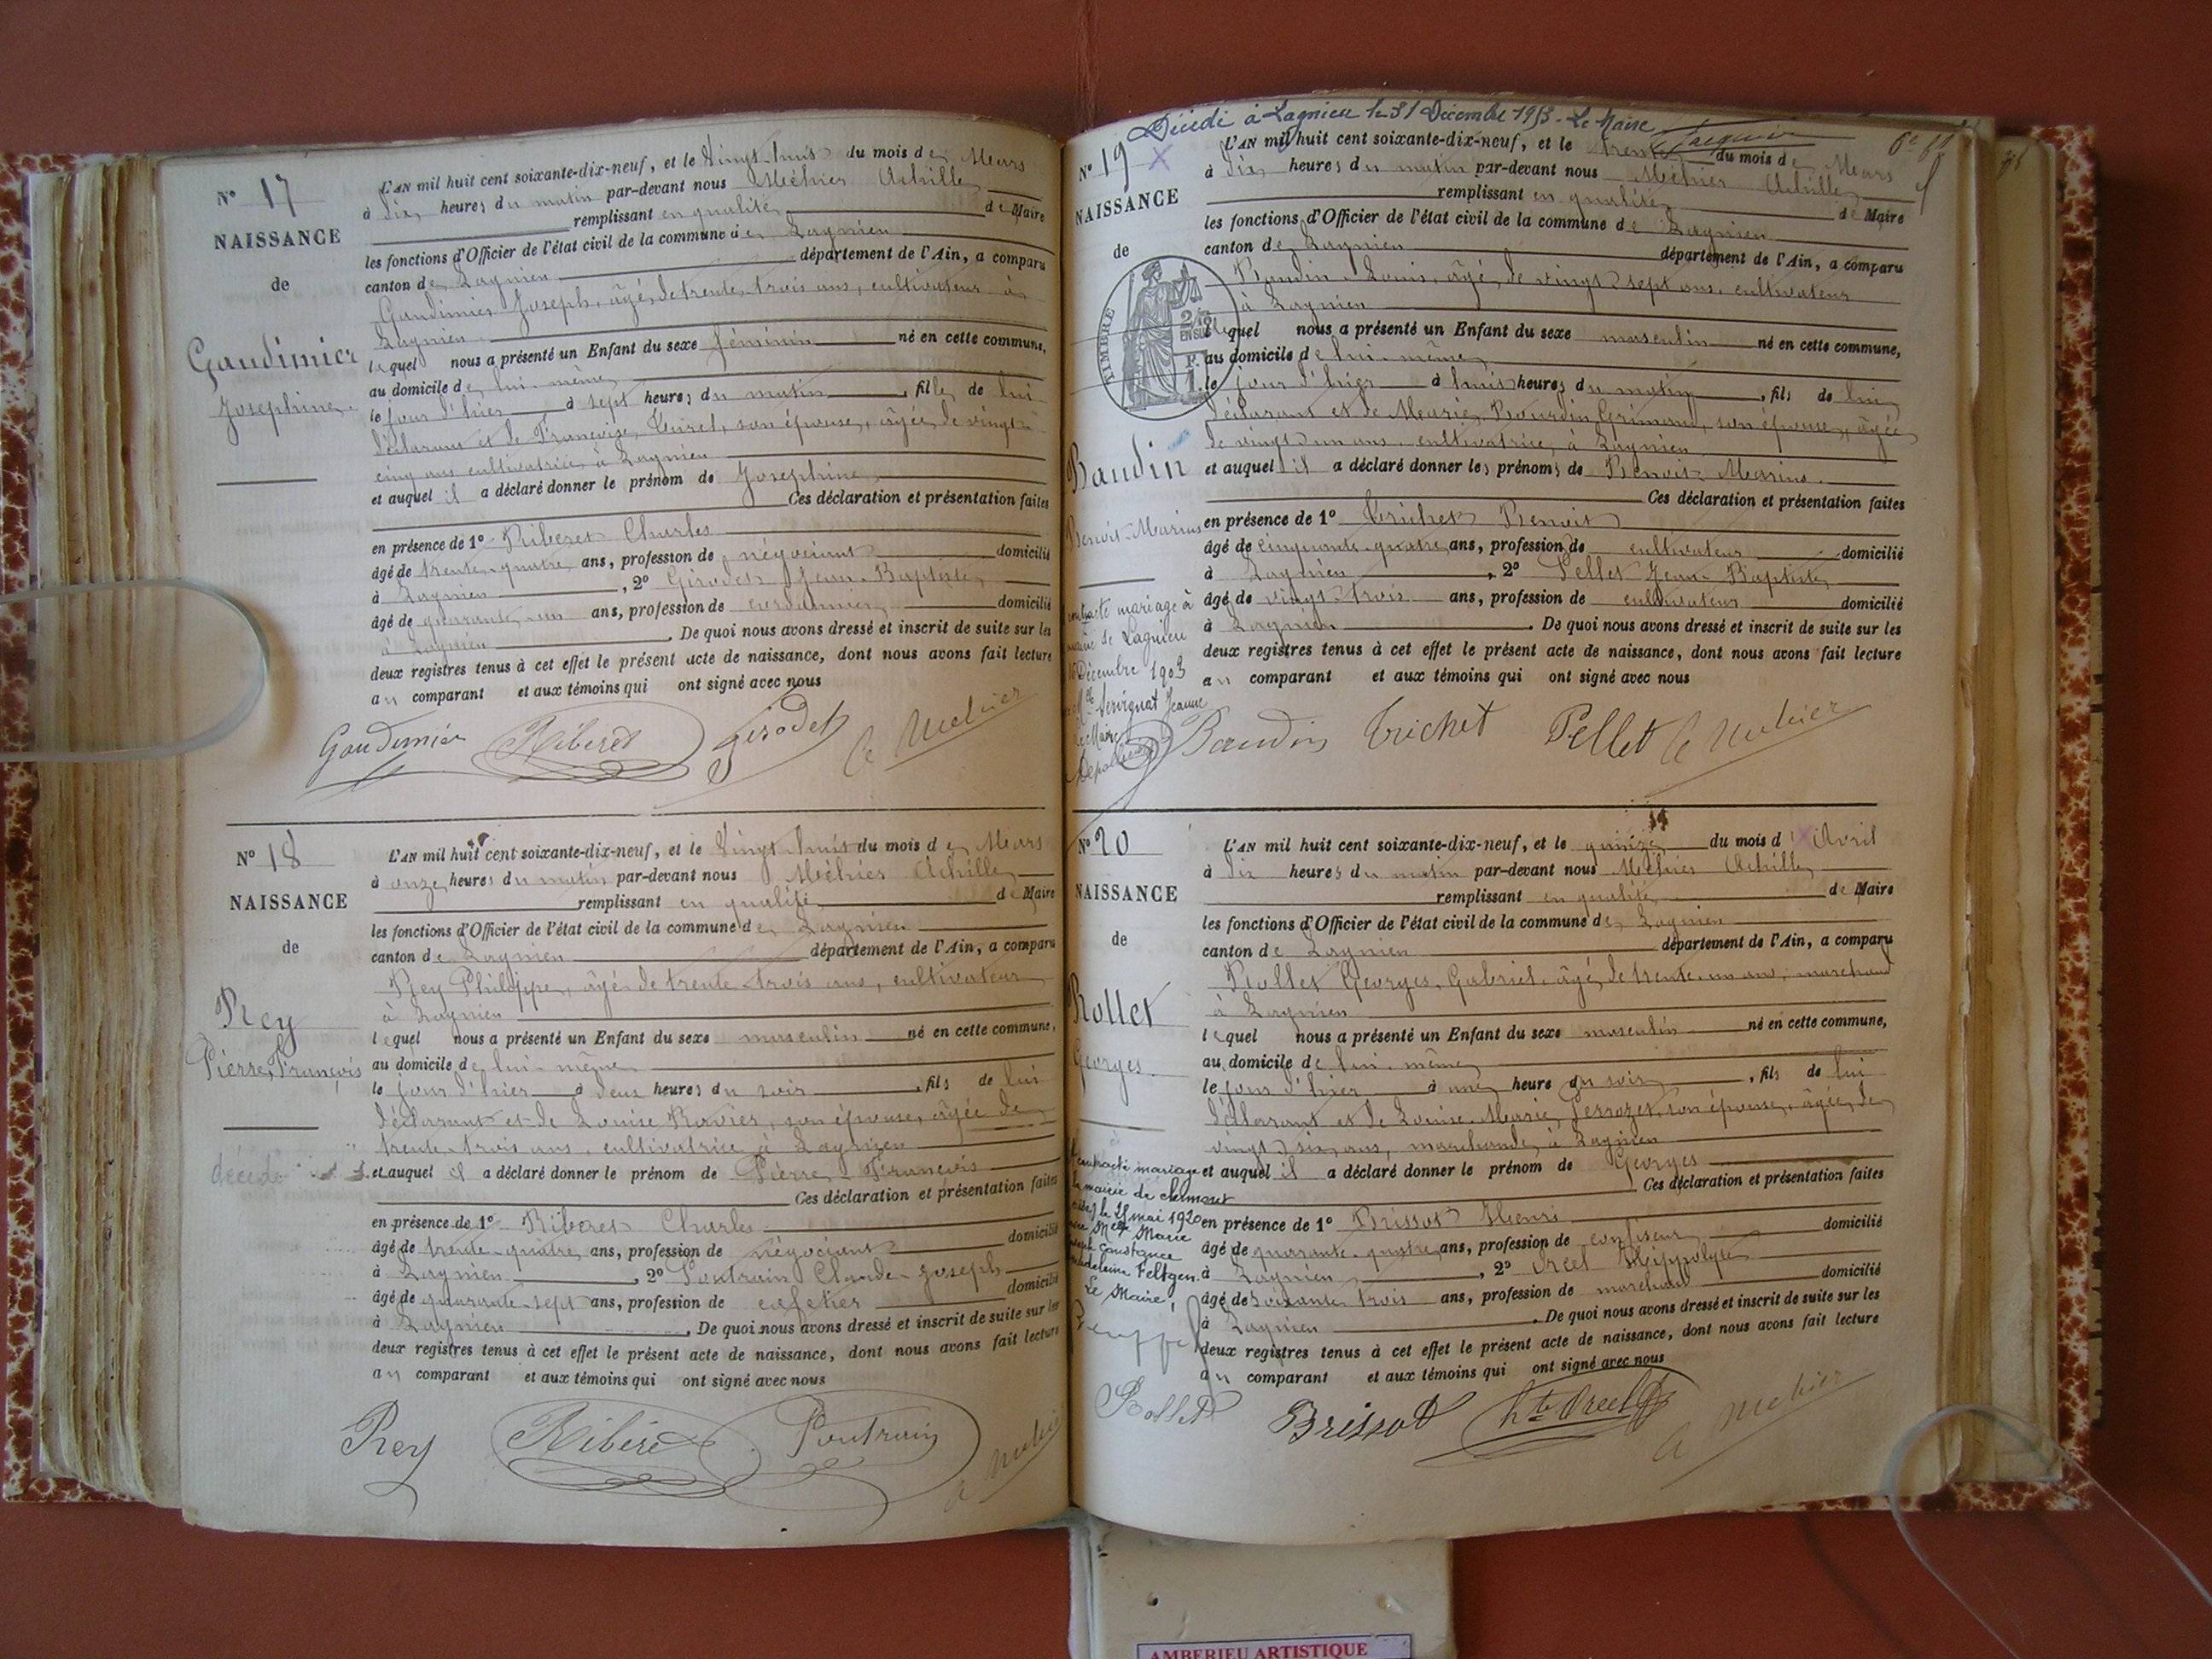 N° 17
NAISSANCE
de
Gaudimier
Joséphine
L'AN mil huit cent soixante-dix-neuf, et le vingt-huit du mois de Mars
à dix heures du matin par-devant nous Méhier Achille
remplissant en qualité de Maire
les fonctions d'Officier de l'état civil de la commune de Lagnieu
canton de Lagnieu département de l'Ain, a comparu
Gaudimier Joseph, âgé de trente trois ans, cultivateur à
Lagnieu
lequel nous a présenté un Enfant du sexe féminin né en cette commune,
au domicile de lui-même
le jour d'hier à sept heures du matin, fille de lui
déclarant et de Françoise son épouse, âgée de vingt
cinq ans cultivatrice à Lagnieu
et auquel il a déclaré donner le prénom de Joséphine
Ces déclaration et présentation faites
en présence de 1° Riberet Charles
âgé de trente-quatre ans, profession de négociant domicilié
à Lagnieu, 2° Girodet Jean-Baptiste
âgé de quarante-un ans, profession de cordonnier domicilié
à Lagnieu. De quoi nous avons dressé et inscrit de suite sur les
deux registres tenus à cet effet le présent acte de naissance, dont nous avons fait lecture
au comparant et aux témoins qui ont signé avec nous
Gaudimier Riberet Girodet A Méhier
N° 18
NAISSANCE
de
Rey
Pierre, François
décédé
L'AN mil huit cent soixante-dix-neuf, et le vingt huit du mois de Mars
à onze heures du matin par-devant nous Méhier Achille
remplissant en qualité de Maire
les fonctions d'Officier de l'état civil de la commune de Lagnieu
canton de Lagnieu département de l'Ain, a comparu
Rey Philippe, âgé de trente-trois ans, cultivateur
à Lagnieu
lequel nous a présenté un Enfant du sexe masculin né en cette commune,
au domicile de lui-même
le jour d'hier à deux heures du soir, fils de lui
déclarant et de Louise Rovier, son épouse, âgée de
trente-trois ans, cultivatrice à Lagnieu
et auquel il a déclaré donner le prénom de Pierre-François
Ces déclaration et présentation faites
en présence de 1° Riberet Charles
âgé de trente-quatre ans, profession de négociant domicilié
à Lagnieu, 2° Poutrain Claude-Joseph
âgé de quarante-sept ans, profession de cafetier domicilié
à Lagnieu. De quoi nous avons dressé et inscrit de suite sur les
deux registres tenus à cet effet le présent acte de naissance, dont nous avons fait lecture
au comparant et aux témoins qui ont signé avec nous
Rey Riberet Poutrain A Méhier
Décédé à Lagnieu le 31 Décembre 1953. Le Maire
N° 19
NAISSANCE
de
TIMBRE
Baudin
Benoit-Marius
contracté mariage à
mairie de Lagnieu
Décembre 1903
Jeanne
Le Maire
L'AN mil huit cent soixante-dix-neuf, et le trente du mois de Mars
à dix heures du matin par-devant nous Méhier Achille
remplissant en qualité de Maire
les fonctions d'Officier de l'état civil de la commune de Lagnieu
canton de Lagnieu département de l'Ain, a comparu
Baudin Louis, âgé de vingt-sept ans, cultivateur
à Lagnieu
lequel nous a présenté un Enfant du sexe masculin né en cette commune,
au domicile de lui-même
le jour d'hier à huit heures du matin, fils de lui
déclarant et de Marie, son épouse, âgée
de vingt-un ans, cultivatrice, à Lagnieu
et auquel il a déclaré donner les prénoms de Benoit-Marius.
Ces déclaration et présentation faites
en présence de 1° Trichet Benoit
âgé de cinquante-quatre ans, profession de cultivateur domicilié
à Lagnieu, 2° Pellet Jean-Baptiste
âgé de vingt-trois ans, profession de cultivateur domicilié
à Lagnieu. De quoi nous avons dressé et inscrit de suite sur les
deux registres tenus à cet effet le présent acte de naissance, dont nous avons fait lecture
au comparant et aux témoins qui ont signé avec nous
Baudin Trichet Pellet A Méhier
N° 20
NAISSANCE
de
Rollet
Georges
contracté mariage
mairie de
le 25 mai 1920
Marie
Constance
Madeleine Feltgen.
Le Maire,
L'AN mil huit cent soixante-dix-neuf, et le quinze du mois d'Avril
à dix heures du matin par-devant nous Méhier Achille
remplissant en qualité de Maire
les fonctions d'Officier de l'état civil de la commune de Lagnieu
canton de Lagnieu département de l'Ain, a comparu
Rollet Georges, Gabriel, âgé de trente-un ans, marchand
à Lagnieu
lequel nous a présenté un Enfant du sexe masculin né en cette commune,
au domicile de lui-même
le jour d'hier à une heure du soir, fils de lui
déclarant et de Louise-Marie son épouse, âgée de
vingt-six ans, marchande, à Lagnieu
et auquel il a déclaré donner le prénom de Georges
Ces déclaration et présentation faites
en présence de 1° Brissot Henri
âgé de quarante-quatre ans, profession de confiseur domicilié
à Lagnieu, 2° Orcet Hippolyte
âgé de soixante trois ans, profession de marchand domicilié
à Lagnieu. De quoi nous avons dressé et inscrit de suite sur les
deux registres tenus à cet effet le présent acte de naissance, dont nous avons fait lecture
au comparant et aux témoins qui ont signé avec nous
Rollet Brissot Hte Orcet A Méhier
AMBERIEU ARTISTIQUE